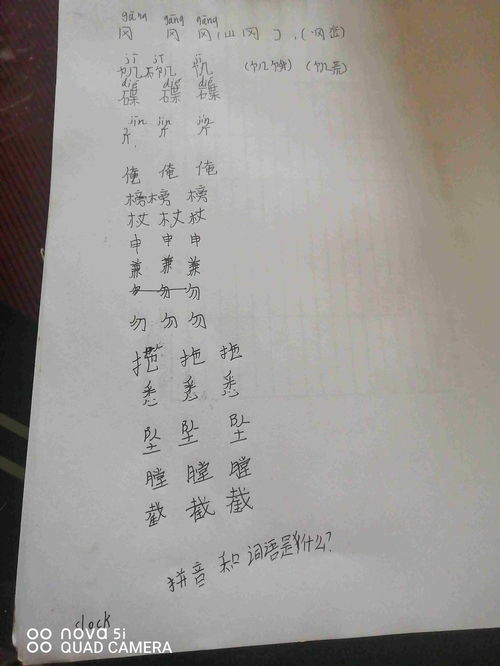 gāng gāng gāng
冈 冈 冈(山冈),(冈峦)
jī jī jī
饥饥 饥 (饥饿)(饥荒)
dié dié dié
碟 碟 碟
jīn jīn jīn
斤 斤 斤
俺 俺 俺
榜榜 榜
杖 杖 杖
申 申 申
兼 兼 兼
勿 勿 勿
勿 勿 勿
拖 拖 拖
悉 悉 悉
坠 坠 坠
膛 膛 膛
截 截 截
拼音和词语是什么?
clock
nova 5i
QUAD CAMERA